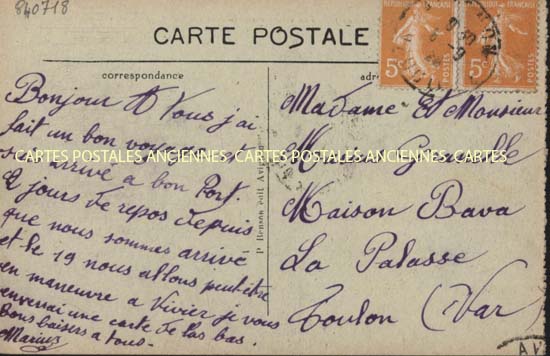 840718
CARTE POSTALE
correspondance
Bonjour A Vous j'ai
fait un bon voyage
suis arrivé a bon Port.
2 jours de repos depuis
que nous sommes arrivé
et le 19 nous allons peut être
en maneuvre a Vivier je vous
enverrai une carte de las bas.
Bons baisers a tous-
Marius
Madame Et Monsieur
Maison Bava
La Palasse
Toulon (Var)
REPUBLIQUE FRANÇAISE
5c
POSTES
5c
POSTES
CARTES POSTALES ANCIENNES CARTES POSTALES ANCIENNES CARTES